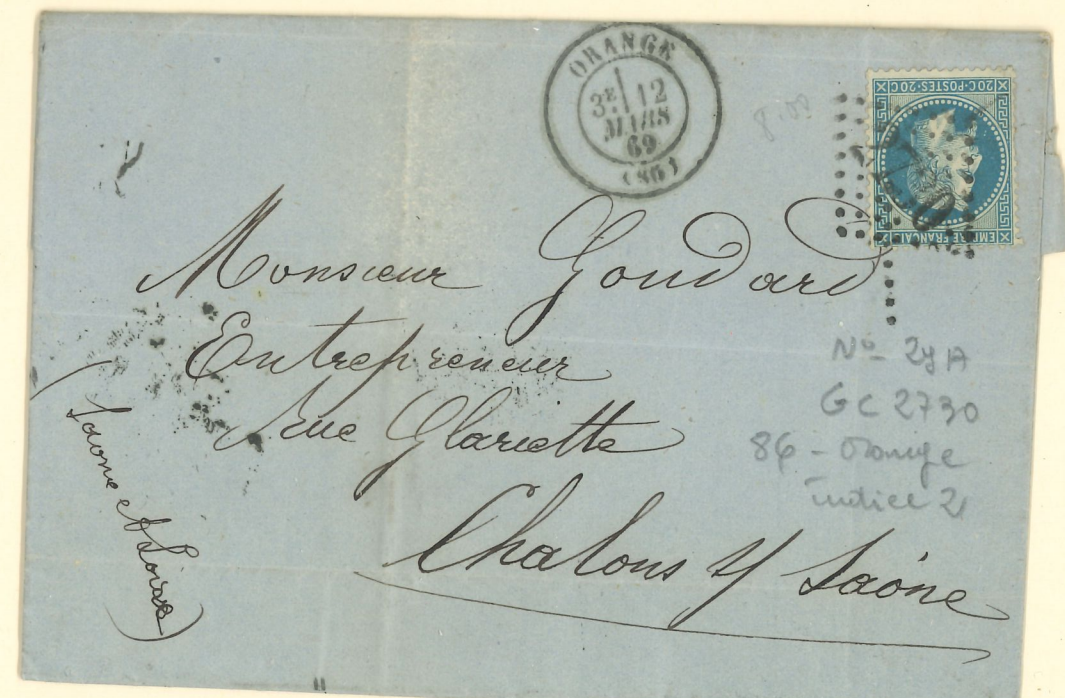 ORANGE
3E 12
MARS
69
(86)
8.00
20C·POSTES·20C
EMPIRE FRANCAIS
2730
Monsieur Goudard
Entrepreneur
Rue Glariette
Chalons s/ Saône
(Saone et Loire)
No 29A
GC 2730
86 - Orange
indice 2